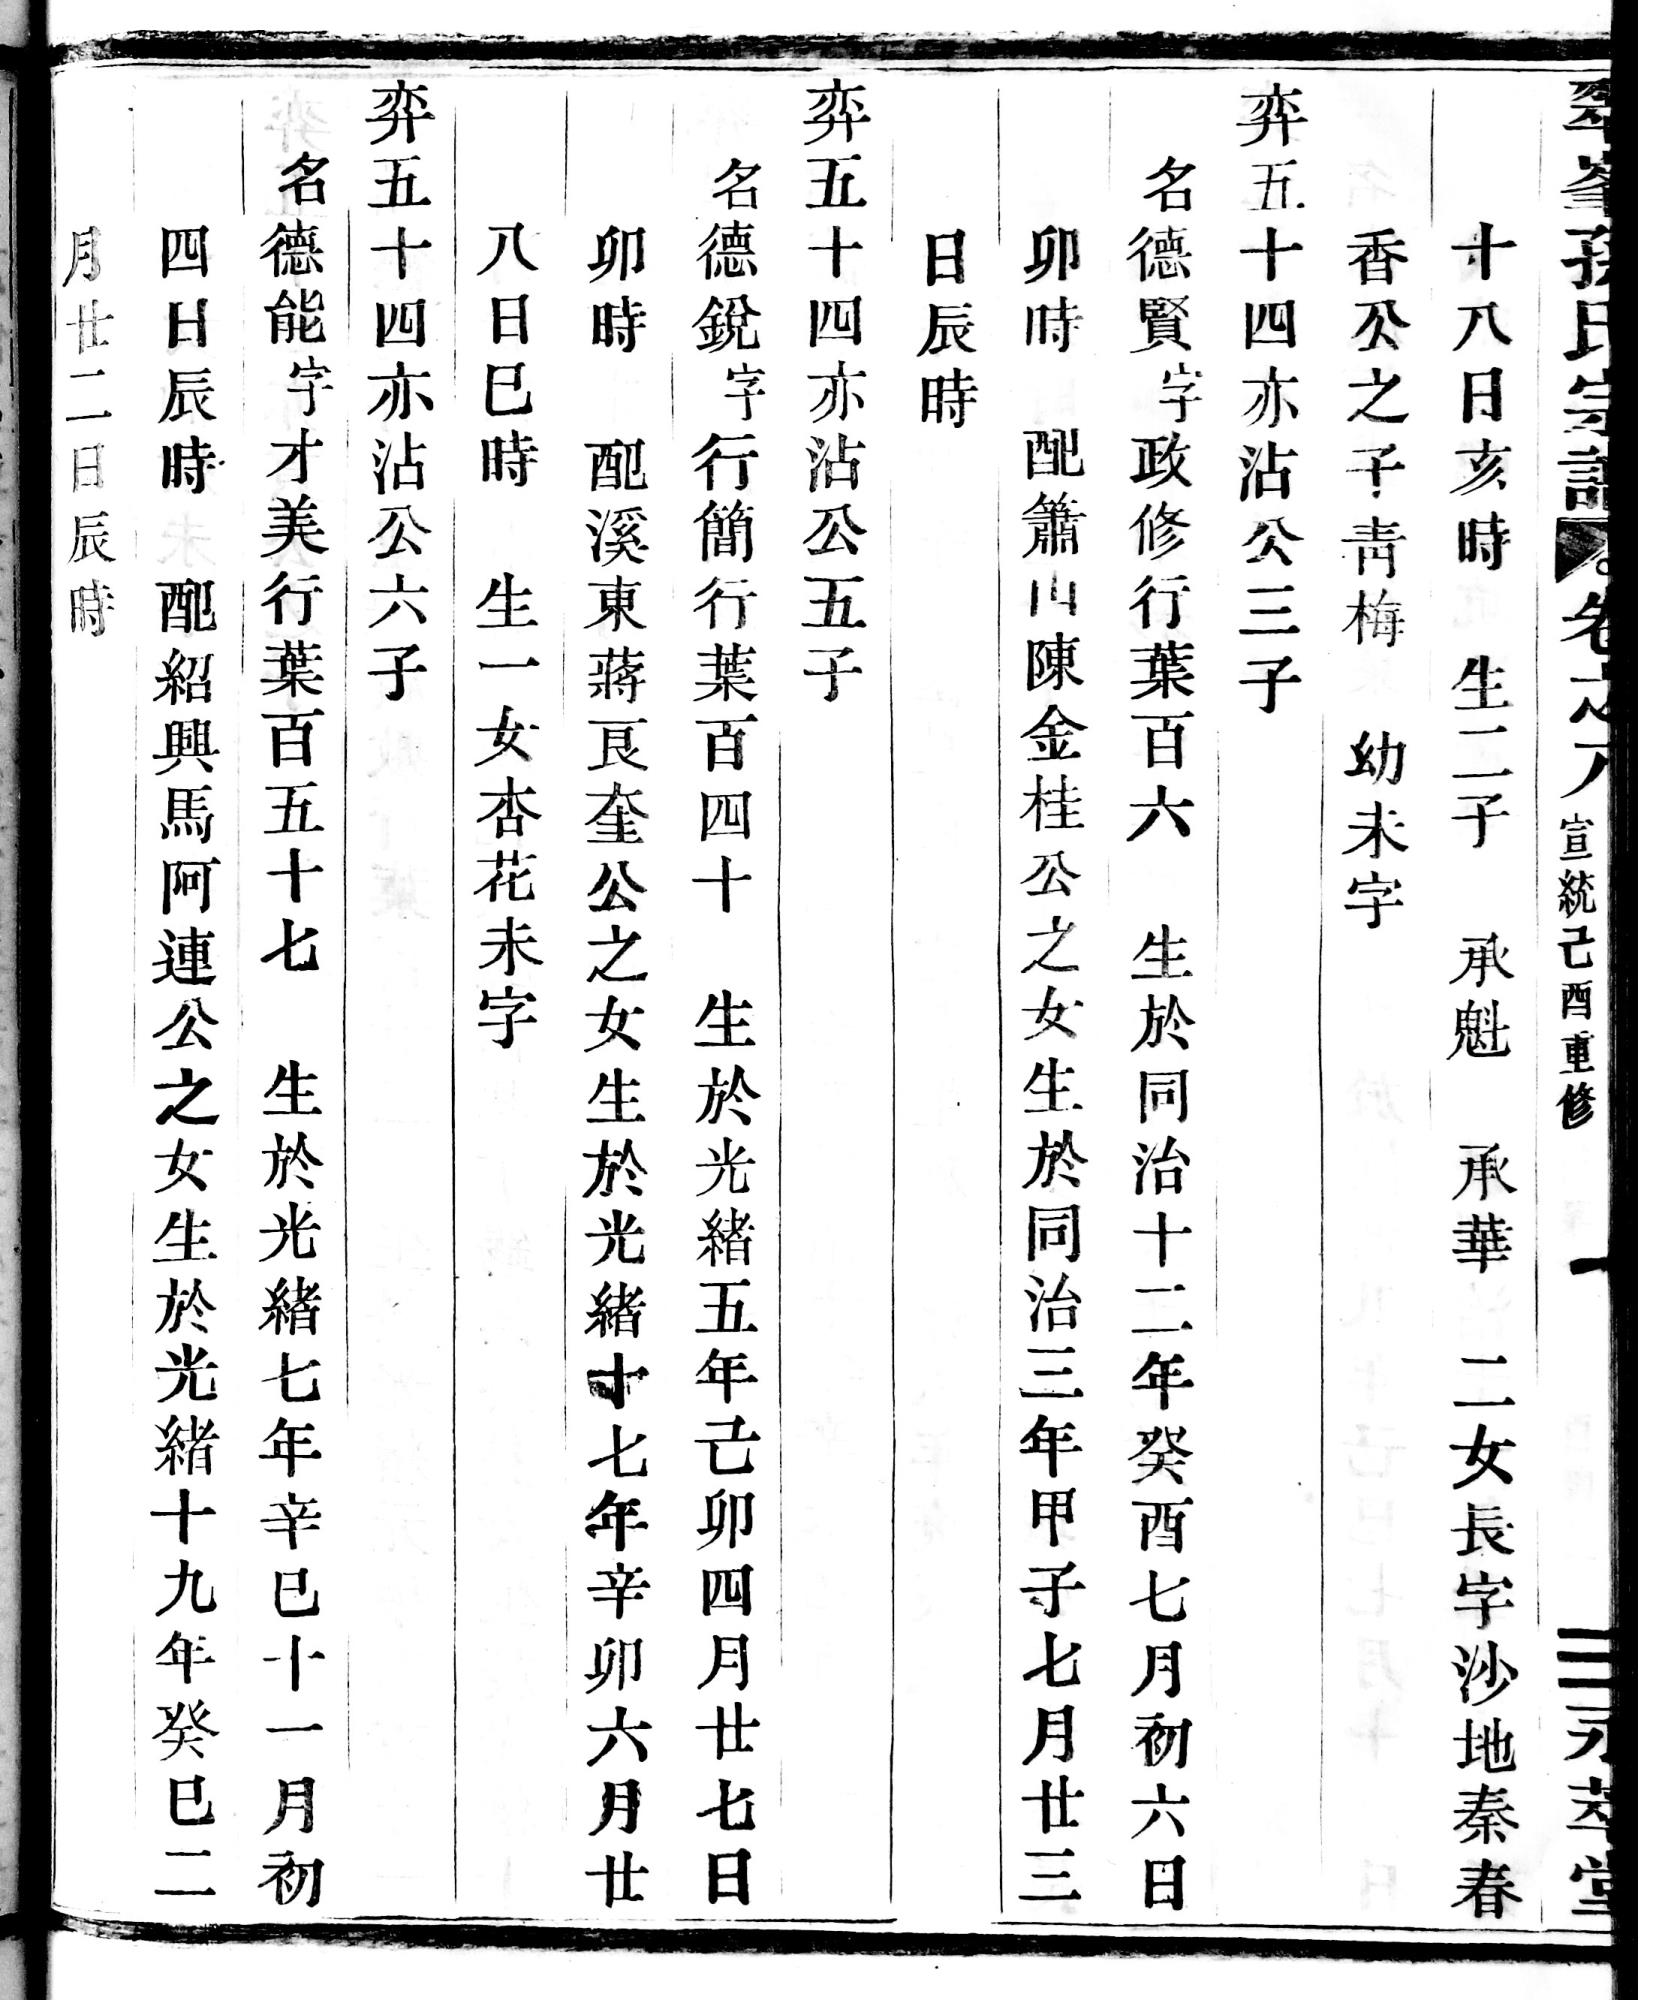 翠峯孫氏宗譜 卷之八 宣統己酉重修 永萃堂
十八日亥時 生二子 承魁 承華 二女長字沙地秦春
香公之子青梅 幼未字
弈五十四亦沾公三子
名德賢字政修行葉百六 生於同治十二年癸酉七月初六日
卯時 配簫山陳金桂公之女生於同治三年甲子七月廿三
日辰時
弈五十四亦沾公五子
名德銳字行簡行葉百四十 生於光緒五年己卯四月廿七日
卯時 配溪東蔣艮奎公之女生於光緒十七年辛卯六月廿
八日巳時 生一女杏花未字
弈五十四亦沾公六子
名德能字才美行葉百五十七 生於光緒七年辛巳十一月初
四日辰時 配紹興馬阿連公之女生於光緒十九年癸巳二
月廿二日辰時